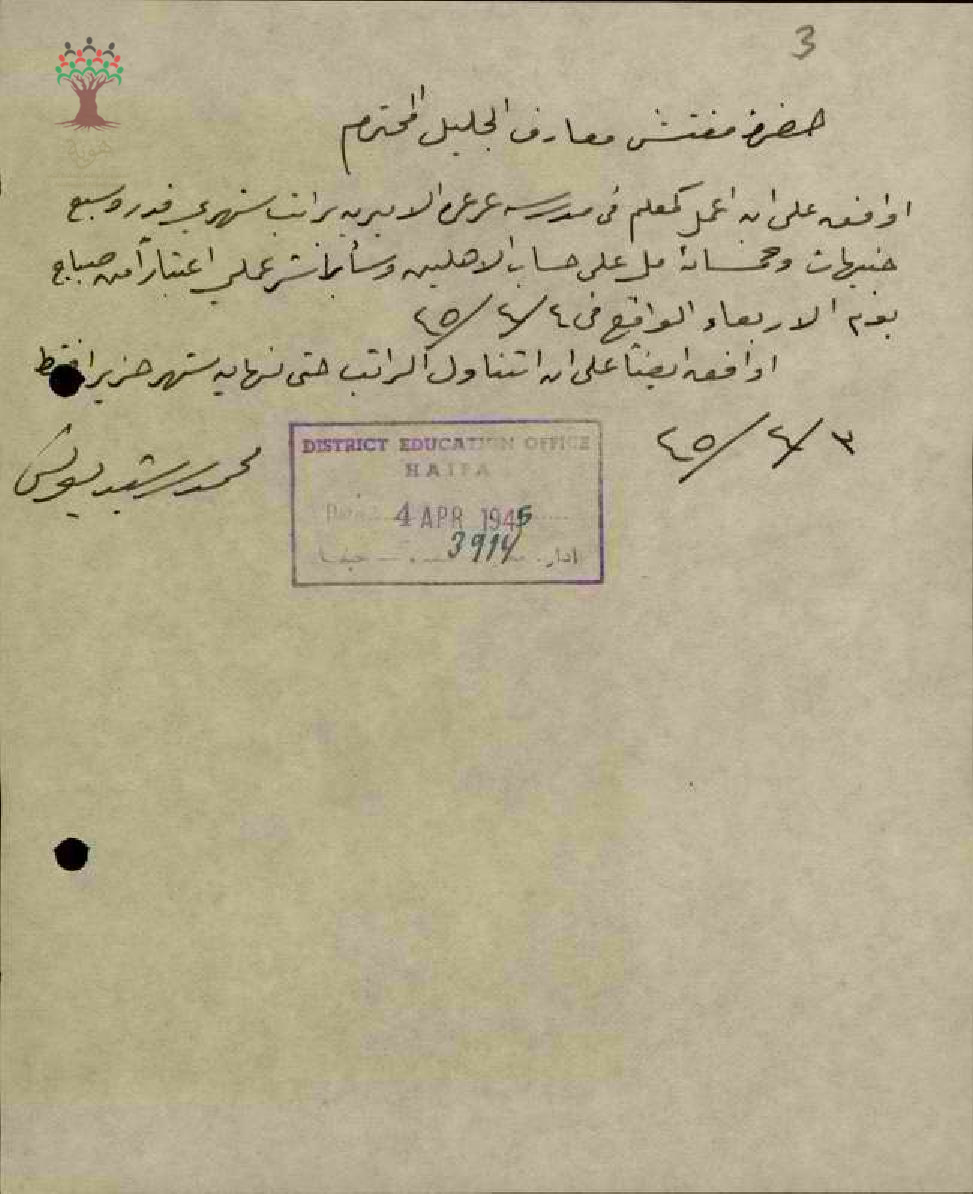 3
حضرة مفتش معارف الجليل المحترم
اوافق على ان اعمل كمعلم في مدرسة عرعره الاميرية براتب شهري قدره سبع
جنيهات وخمسمائة مل على حساب الاهلين وسأباشر عملي اعتباراً من صباح
يوم الاربعاء الواقع في ٤/٤/٤٥
اوافق ايضاً على ان اتناول الراتب حتى نهاية شهر حزيران فقط
٣/٤/٤٥
محمد رشيد يونس
DISTRICT EDUCATION OFFICE
HAIFA
Date 4 APR 1945
3914